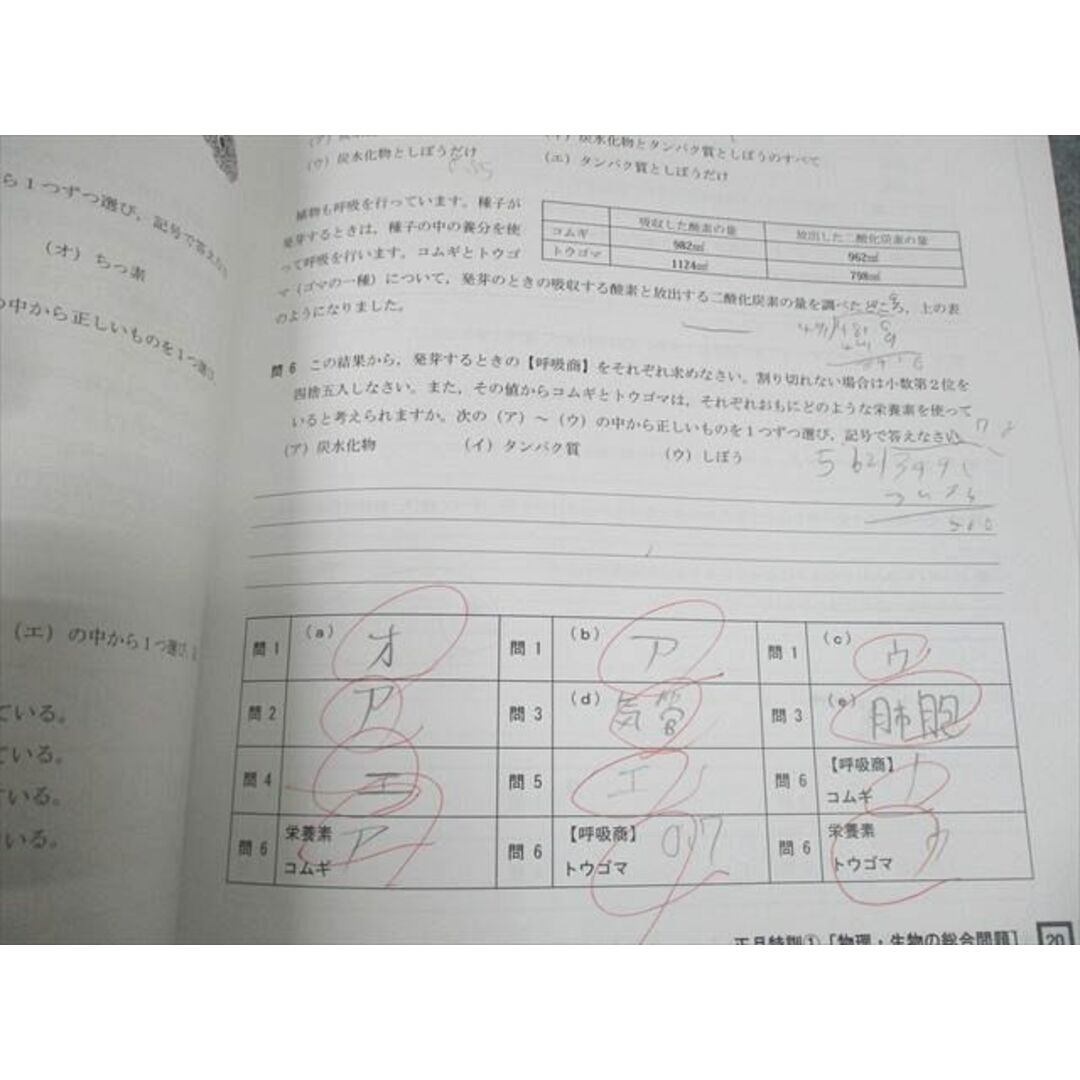 (ウ) 炭水化物としぼうだけ
炭水化物とタンパク質としぼうのすべて
(エ) タンパク質としぼうだけ
ら1つずつ選び，記号で答え
(オ) ちっ素
の中から正しいものを1つ選び
(エ) の中から1つ選び
ている。
ている。
ている。
いる。
植物も呼吸を行っています。種子が
発芽するときは，種子の中の養分を使
って呼吸を行います。コムギとトウゴ
マ（ゴマの一種）について，発芽のときの吸収する酸素と放出する二酸化炭素の量を調べたところ，上の表
のようになりました。
吸収した酸素の量 放出した二酸化炭素の量
コムギ 982㎣ 962㎣
トウゴマ 1124㎣ 798㎣
問6 この結果から，発芽するときの【呼吸商】をそれぞれ求めなさい。割り切れない場合は小数第2位を
四捨五入しなさい。また，その値からコムギとトウゴマは，それぞれおもにどのような栄養素を使って
いると考えられますか。次の（ア）～（ウ）の中から正しいものを1つずつ選び，記号で答えなさい。
(ア) 炭水化物 (イ) タンパク質 (ウ) しぼう
問1 (a) オ 問1 (b) ア 問1 (c) ウ
問2 ア 問3 (d) 気管 問3 (e) 肺胞
問4 エ 問5 エ 問6 【呼吸商】 コムギ 1
問6 栄養素 コムギ ア 問6 【呼吸商】 トウゴマ 0.7 問6 栄養素 トウゴマ ウ
正月特訓①［物理・生物の総合問題］ 20